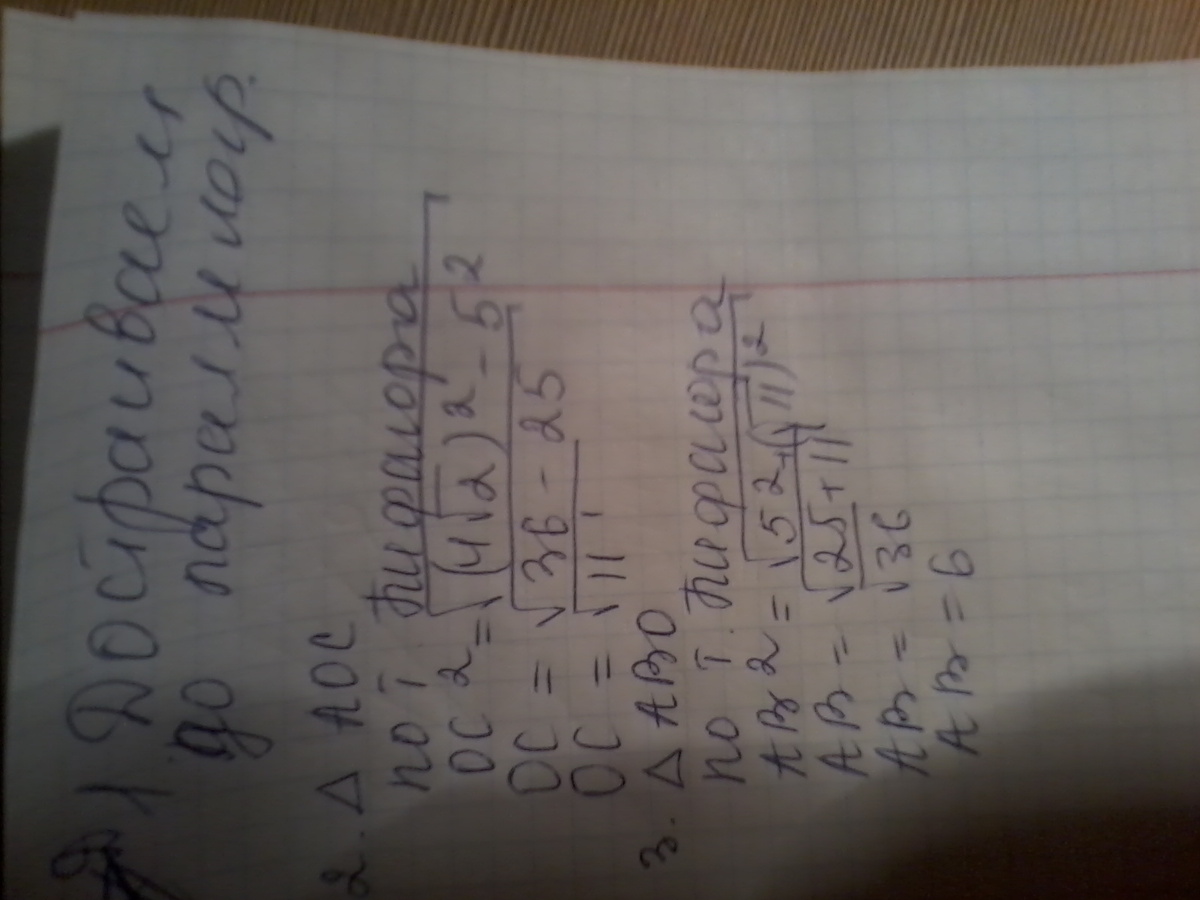 1 Достраиваем
до параллелогр.
2. △ AOC
по т Пифагора
OC 2 = √(4√2)² - 5²
OC = √36 - 25
OC = √11
3. △ ABO
по т. Пифагора
AB 2 = √5² + (√11)²
AB = √25 + 11
AB = √36
AB = 6